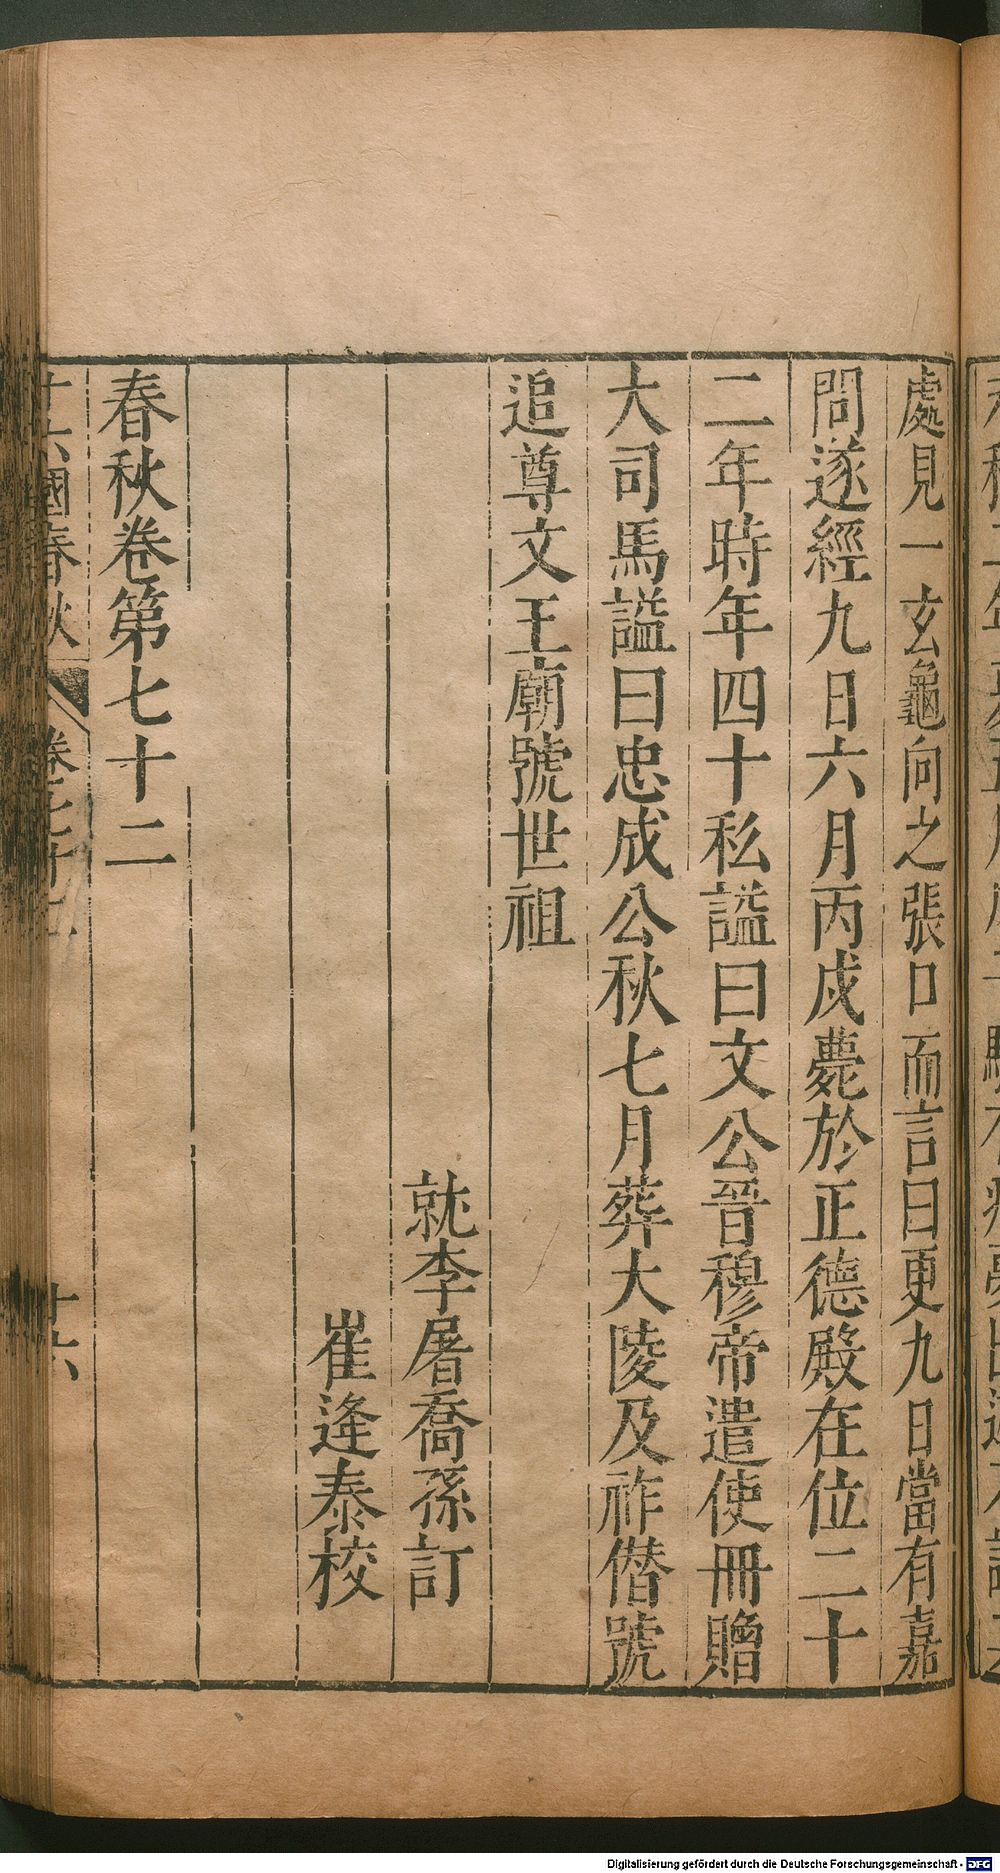 處見一玄龜向之張口而言曰更九日當有嘉
問遂經九日六月丙戌薨於正德殿在位二十
二年時年四十私謚曰文公晉穆帝遣使冊贈
大司馬謚曰忠成公秋七月葬大陵及祚僣號
追尊文王廟號世祖
就李屠喬孫訂
崔逢泰校
春秋卷第七十二
十六國春秋
卷七十二
十六
Digitalisierung gefördert durch die Deutsche Forschungsgemeinschaft - DFG